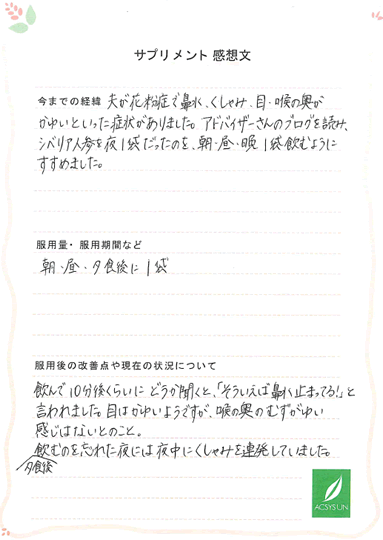 サプリメント 感想文
今までの経緯 夫が花粉症で鼻水、くしゃみ、目・喉の奥が
かゆいといった症状がありました。アドバイザーさんのブログを読み、
シベリア人参を夜1袋だったのを、朝・昼・晩 1袋飲むように
すすめました。
服用量・服用期間など
朝・昼・夕食後に1袋
服用後の改善点や現在の状況について
飲んで10分後くらいに どうか聞くと、「そういえば鼻水止まってる!」と
言われました。目はかゆいようですが、喉の奥のむずがゆい
感じはないとのこと。
飲むのを忘れた夜には夜中にくしゃみを連発していました。
夕食後
ACSYSUN